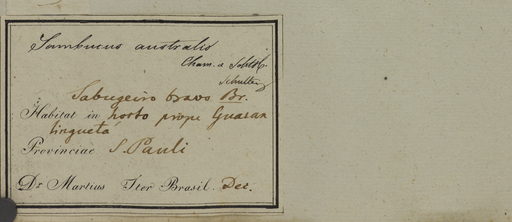 Sambucus australis
Cham. e Schltdl.
Sabugeiro bravo Br.
Habitat in horto prope Guaran
tinguetá
Provinciae S. Pauli
Dr Martius Iter Brasil. Dec.